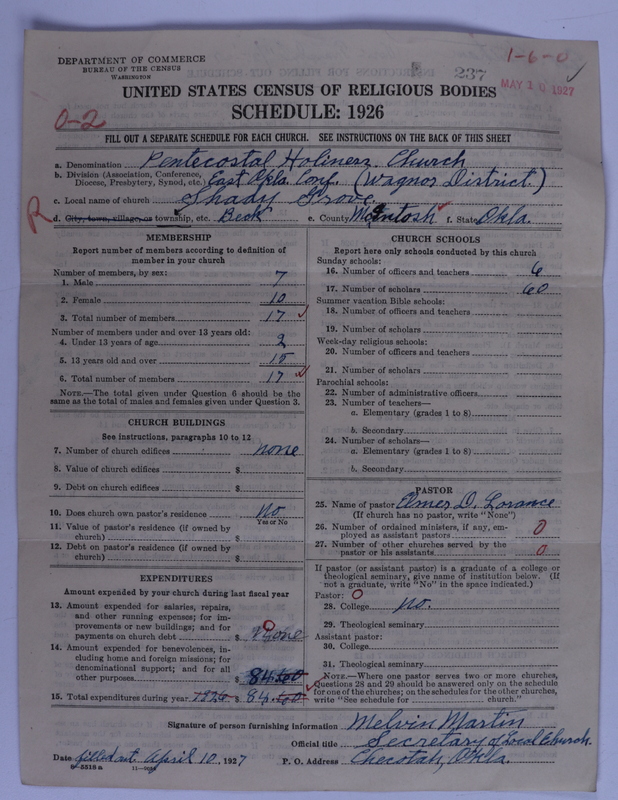 DEPARTMENT OF COMMERCE
BUREAU OF THE CENSUS
WASHINGTON
1-6-0
237
MAY 10 1927
UNITED STATES CENSUS OF RELIGIOUS BODIES
SCHEDULE: 1926
0-2
FILL OUT A SEPARATE SCHEDULE FOR EACH CHURCH. SEE INSTRUCTIONS ON THE BACK OF THIS SHEET
a. Denomination Pentecostal Holiness Church
b. Division (Association, Conference,
Diocese, Presbytery, Synod, etc.) East Okla. Conf. (Wagnor District.)
c. Local name of church Shady Grove.
R
d. City, town, village, or township, etc. Beck e. County McIntosh f. State Okla.
MEMBERSHIP
Report number of members according to definition of
member in your church
Number of members, by sex:
1. Male 7
2. Female 10
3. Total number of members 17
Number of members under and over 13 years old:
4. Under 13 years of age 2
5. 13 years old and over 15
6. Total number of members 17
NOTE.—The total given under Question 6 should be
same as the total of males and females given under Question 3.
CHURCH BUILDINGS
See instructions, paragraphs 10 to 12
7. Number of church edifices none
8. Value of church edifices $
9. Debt on church edifices $
10. Does church own pastor's residence No
Yes or No
11. Value of pastor's residence (if owned by
church) $
12. Debt on pastor's residence (if owned by
church) $
EXPENDITURES
Amount expended by your church during last fiscal year
13. Amount expended for salaries, repairs,
and other running expenses; for im-
provements or new buildings; and for
payments on church debt $ None 0
14. Amount expended for benevolences, in-
cluding home and foreign missions; for
denominational support; and for all
other purposes $ 84.00
15. Total expenditures during year 1926 $ 84.00
CHURCH SCHOOLS
Report here only schools conducted by this church
Sunday schools:
16. Number of officers and teachers 6
17. Number of scholars 60
Summer vacation Bible schools:
18. Number of officers and teachers
19. Number of scholars
Week-day religious schools:
20. Number of officers and teachers
21. Number of scholars
Parochial schools:
22. Number of administrative officers
23. Number of teachers—
a. Elementary (grades 1 to 8)
b. Secondary
24. Number of scholars—
a. Elementary (grades 1 to 8)
b. Secondary
PASTOR
25. Name of pastor Elmer D. Lorance
(If church has no pastor, write "None")
26. Number of ordained ministers, if any, em-
ployed as assistant pastors 0
27. Number of other churches served by the
pastor or his assistants 0
If pastor (or assistant pastor) is a graduate of a college or
theological seminary, give name of institution below. (If
not a graduate, write "No" in the space indicated.)
Pastor: 0
28. College No.
29. Theological seminary
Assistant pastor:
30. College
31. Theological seminary
NOTE.—Where one pastor serves two or more churches,
Questions 28 and 29 should be answered only on the schedule
for one of the churches; on the schedules for the other churches,
write "See schedule for church."
Signature of person furnishing information Melvin Martin
Official title Secretary of Local Church.
Date filled out April 10, 1927 P. O. Address Checotah, Okla.
8-5518 a